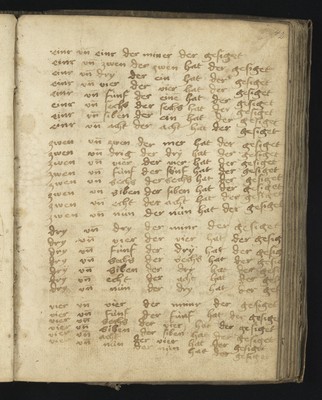 einr vn einr der miner der gesiget
einr vn zwen der zwen hat der gesiget
einr vn dry der ein hat der gesiget
einr vn vier der vier hat der gesiget
einr vn funf der eine hat der gesiget
einr vn sechs der sechs hat der gesiget
einr vn siben der ein hat der gesiget
einr vn acht der acht hat der gesiget
zwen vn zwen der mer hat der gesiget
zwen vn drig der dry hat der gesiget
zwen vn vier der vier hat der gesiget
zwen vn funf der funf hat der gesiget
zwen vn sechs der sechs hat der gesiget
zwen vn siben der siben hat der gesiget
zwen vn echt der acht hat der
zwen vn nun der nun hat der gesiget
dry vn dry der minr der gesiget
dry vn vier der vier hat der gesiget
dry vn funf der dry hat der gesiget
dry vn sechs der sechs hat der gesiget
dry vn siben der dry hat der gesiget
dry vn echt der acht hat der gesiget
dry vn nun der dry hat der
vier vn vier der minr der gesiget
vier vn funf der funf hat der gesiget
vier vn sechs der vier hat der gesiget
vier vn siben der siben hat der gesiget
vier vn acht der vier hat der gesiget
vier vn nun der nun hat der gesiget